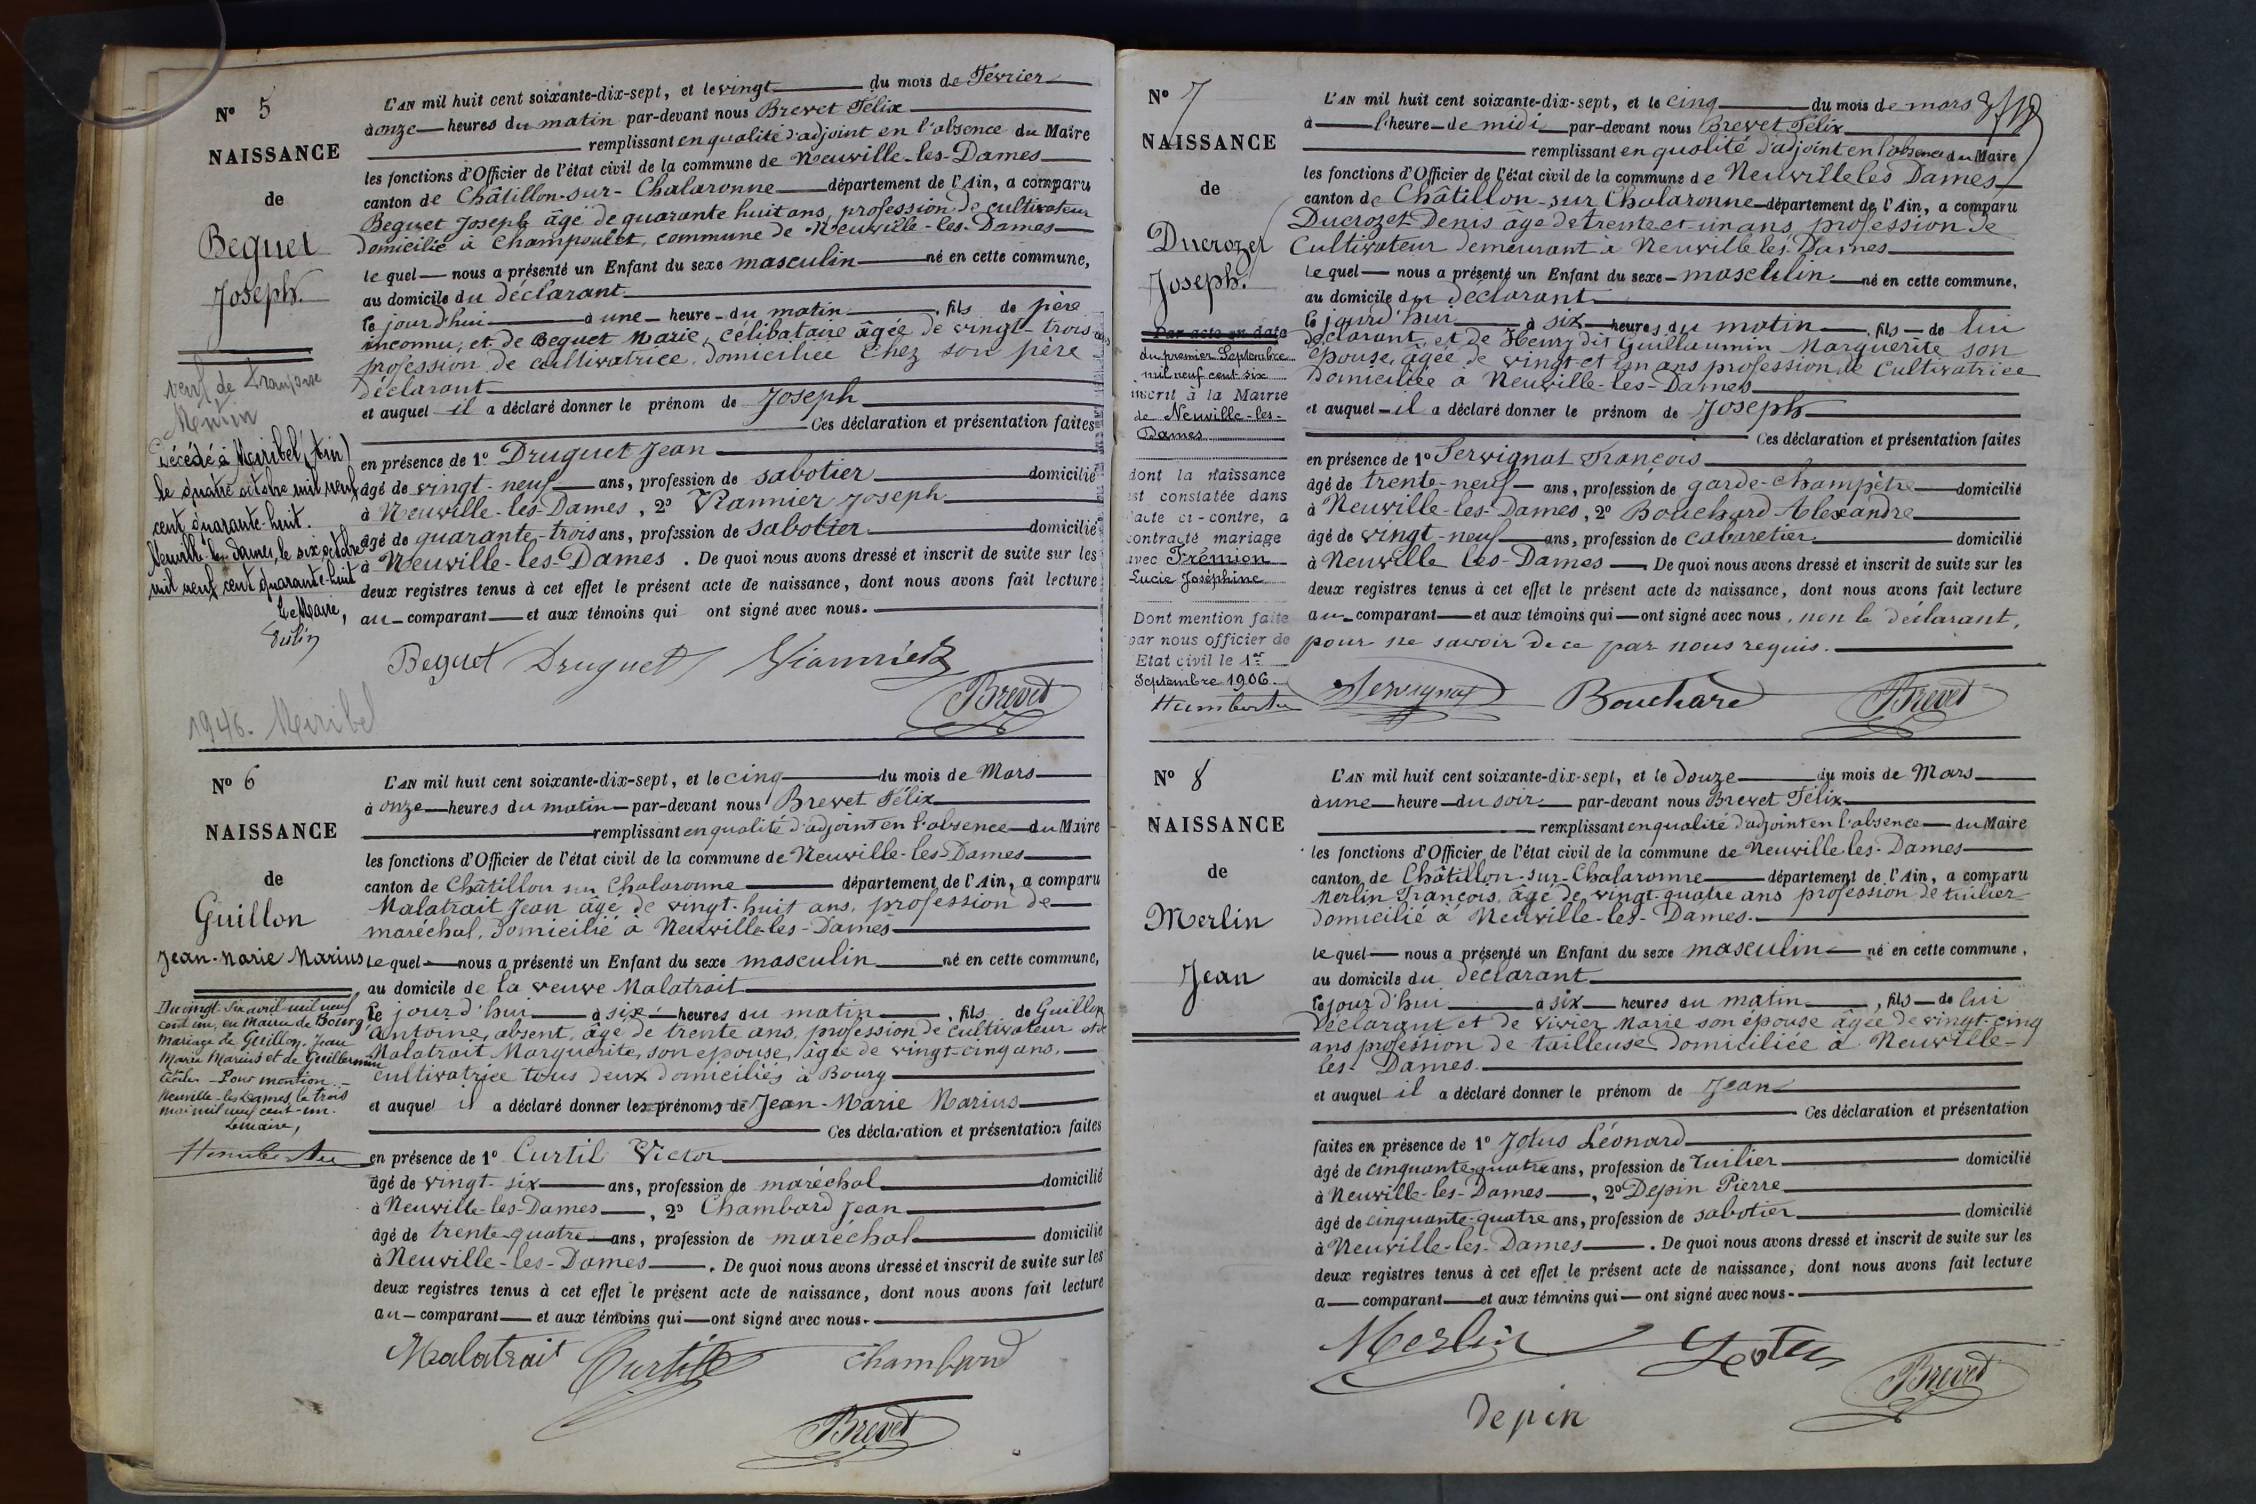 Nº 5
NAISSANCE
de
Beguet
Joseph.
veuf de
Décédé à Miribel (Ain)
le quatre octobre mil neuf
cent quarante-huit.
Neuville-les-Dames, le six octobre
mil neuf cent quarante-huit
Le Maire,
1948. Miribel
L'AN mil huit cent soixante-dix-sept, et le vingt du mois de Février
à onze heures du matin par-devant nous Brevet Félix
remplissant en qualité d'adjoint en l'absence du Maire
les fonctions d'Officier de l'état civil de la commune de Neuville-les-Dames
canton de Châtillon-sur-Chalaronne département de l'Ain, a comparu
Beguet Joseph âgé de quarante huit ans, profession de cultivateur
domicilié à Champoulet, commune de Neuville-les-Dames
le quel nous a présenté un Enfant du sexe masculin né en cette commune,
au domicile du déclarant
le jourd'hui à une heure du matin, fils de père
inconnu, et de Beguet Marie, célibataire âgée de vingt-trois ans
profession de cultivatrice, domiciliée chez son père
Déclarant
et auquel il a déclaré donner le prénom de Joseph
Ces déclaration et présentation faites
en présence de 1º Druguet Jean
âgé de vingt-neuf ans, profession de sabotier domicilié
à Neuville-les-Dames, 2º Viannier Joseph
âgé de quarante-trois ans, profession de sabotier domicilié
à Neuville-les-Dames. De quoi nous avons dressé et inscrit de suite sur les
deux registres tenus à cet effet le présent acte de naissance, dont nous avons fait lecture
au comparant et aux témoins qui ont signé avec nous.
Beguet Druguet Viannier
Brevet
Nº 6
NAISSANCE
de
Guillon
Jean-Marie Marius
Du vingt-six avril mil neuf
cent un, en Mairie de Bourg,
mariage de Guillon Jean
Marie Marius et de Guillermin
Pour mention.
Neuville-les-Dames, le trois
mai mil neuf cent-un.
Le maire,
L'AN mil huit cent soixante-dix-sept, et le cinq du mois de Mars
à onze heures du matin par-devant nous Brevet Félix
remplissant en qualité d'adjoint en l'absence du Maire
les fonctions d'Officier de l'état civil de la commune de Neuville-les-Dames
canton de Châtillon sur Chalaronne département de l'Ain, a comparu
Malatrait Jean âgé de vingt-huit ans, profession de
maréchal, domicilié à Neuville-les-Dames
le quel nous a présenté un Enfant du sexe masculin né en cette commune,
au domicile de la veuve Malatrait
le jourd'hui à six heures du matin, fils de Guillon
Antoine, absent, âgé de trente ans, profession de cultivateur et de
Malatrait Marguerite, son épouse, âgée de vingt-cinq ans,
cultivatrice tous deux domiciliés à Bourg
et auquel il a déclaré donner les prénoms de Jean-Marie Marius
Ces déclaration et présentation faites
en présence de 1º Curtil Victor
âgé de vingt-six ans, profession de maréchal domicilié
à Neuville-les-Dames, 2º Chambard Jean
âgé de trente-quatre ans, profession de maréchal domicilié
à Neuville-les-Dames. De quoi nous avons dressé et inscrit de suite sur les
deux registres tenus à cet effet le présent acte de naissance, dont nous avons fait lecture
au comparant et aux témoins qui ont signé avec nous.
Malatrait Curtil Chambard
Brevet
Nº 7
NAISSANCE
de
Ducrozet
Joseph.
Par acte en date
du premier Septembre
mil neuf cent six
inscrit à la Mairie
de Neuville-les-
Dames
dont la naissance
est constatée dans
l'acte ci-contre, a
contracté mariage
avec Frémion
Lucie Joséphine
Dont mention faite
par nous officier de
Etat civil le 1er
Septembre 1906
L'AN mil huit cent soixante-dix-sept, et le cinq du mois de mars
à l'heure de midi par-devant nous Brevet Félix
remplissant en qualité d'adjoint en l'absence du Maire
les fonctions d'Officier de l'état civil de la commune de Neuville les Dames
canton de Châtillon-sur Chalaronne département de l'Ain, a comparu
Ducrozet Denis âgé de trente et un ans profession de
Cultivateur demeurant à Neuville les Dames
le quel nous a présenté un Enfant du sexe masculin né en cette commune,
au domicile du déclarant
le jourd'hui à six heures du matin, fils de lui
déclarant, et de Henry dit Guillaumin Marguerite son
épouse, âgée de vingt-et un ans profession de Cultivatrice
Domiciliée à Neuville-les-Dames
et auquel il a déclaré donner le prénom de Joseph
Ces déclaration et présentation faites
en présence de 1º Servignat François
âgé de trente-neuf ans, profession de garde-champêtre domicilié
à Neuville-les-Dames, 2º Bouchard Alexandre
âgé de vingt-neuf ans, profession de cabaretier domicilié
à Neuville les-Dames De quoi nous avons dressé et inscrit de suite sur les
deux registres tenus à cet effet le présent acte de naissance, dont nous avons fait lecture
au comparant et aux témoins qui ont signé avec nous, non le déclarant,
pour ne savoir de ce par nous requis.
Servignat Bouchard Brevet
Nº 8
NAISSANCE
de
Merlin
Jean
L'AN mil huit cent soixante-dix-sept, et le Douze du mois de Mars
à une heure du soir par-devant nous Brevet Félix
remplissant en qualité d'adjoint en l'absence du Maire
les fonctions d'Officier de l'état civil de la commune de Neuville les-Dames
canton de Châtillon-sur-Chalaronne département de l'Ain, a comparu
Merlin François, âgé de vingt-quatre ans profession de tuilier
domicilié à Neuville-les-Dames.
le quel nous a présenté un Enfant du sexe masculin né en cette commune,
au domicile du déclarant
le jour d'hui à six heures du matin, fils de lui
Déclarant et de Vivier Marie son épouse âgée de vingt-cinq
ans profession de tailleuse domiciliée à Neuville-
les-Dames.
et auquel il a déclaré donner le prénom de Jean
Ces déclaration et présentation
faites en présence de 1º Jolus Léonard
âgé de cinquante-quatre ans, profession de Tuilier domicilié
à Neuville-les-Dames, 2º Depin Pierre
âgé de cinquante-quatre ans, profession de sabotier domicilié
à Neuville-les-Dames. De quoi nous avons dressé et inscrit de suite sur les
deux registres tenus à cet effet le présent acte de naissance, dont nous avons fait lecture
a comparant et aux témoins qui ont signé avec nous.
Merlin
Brevet
depin